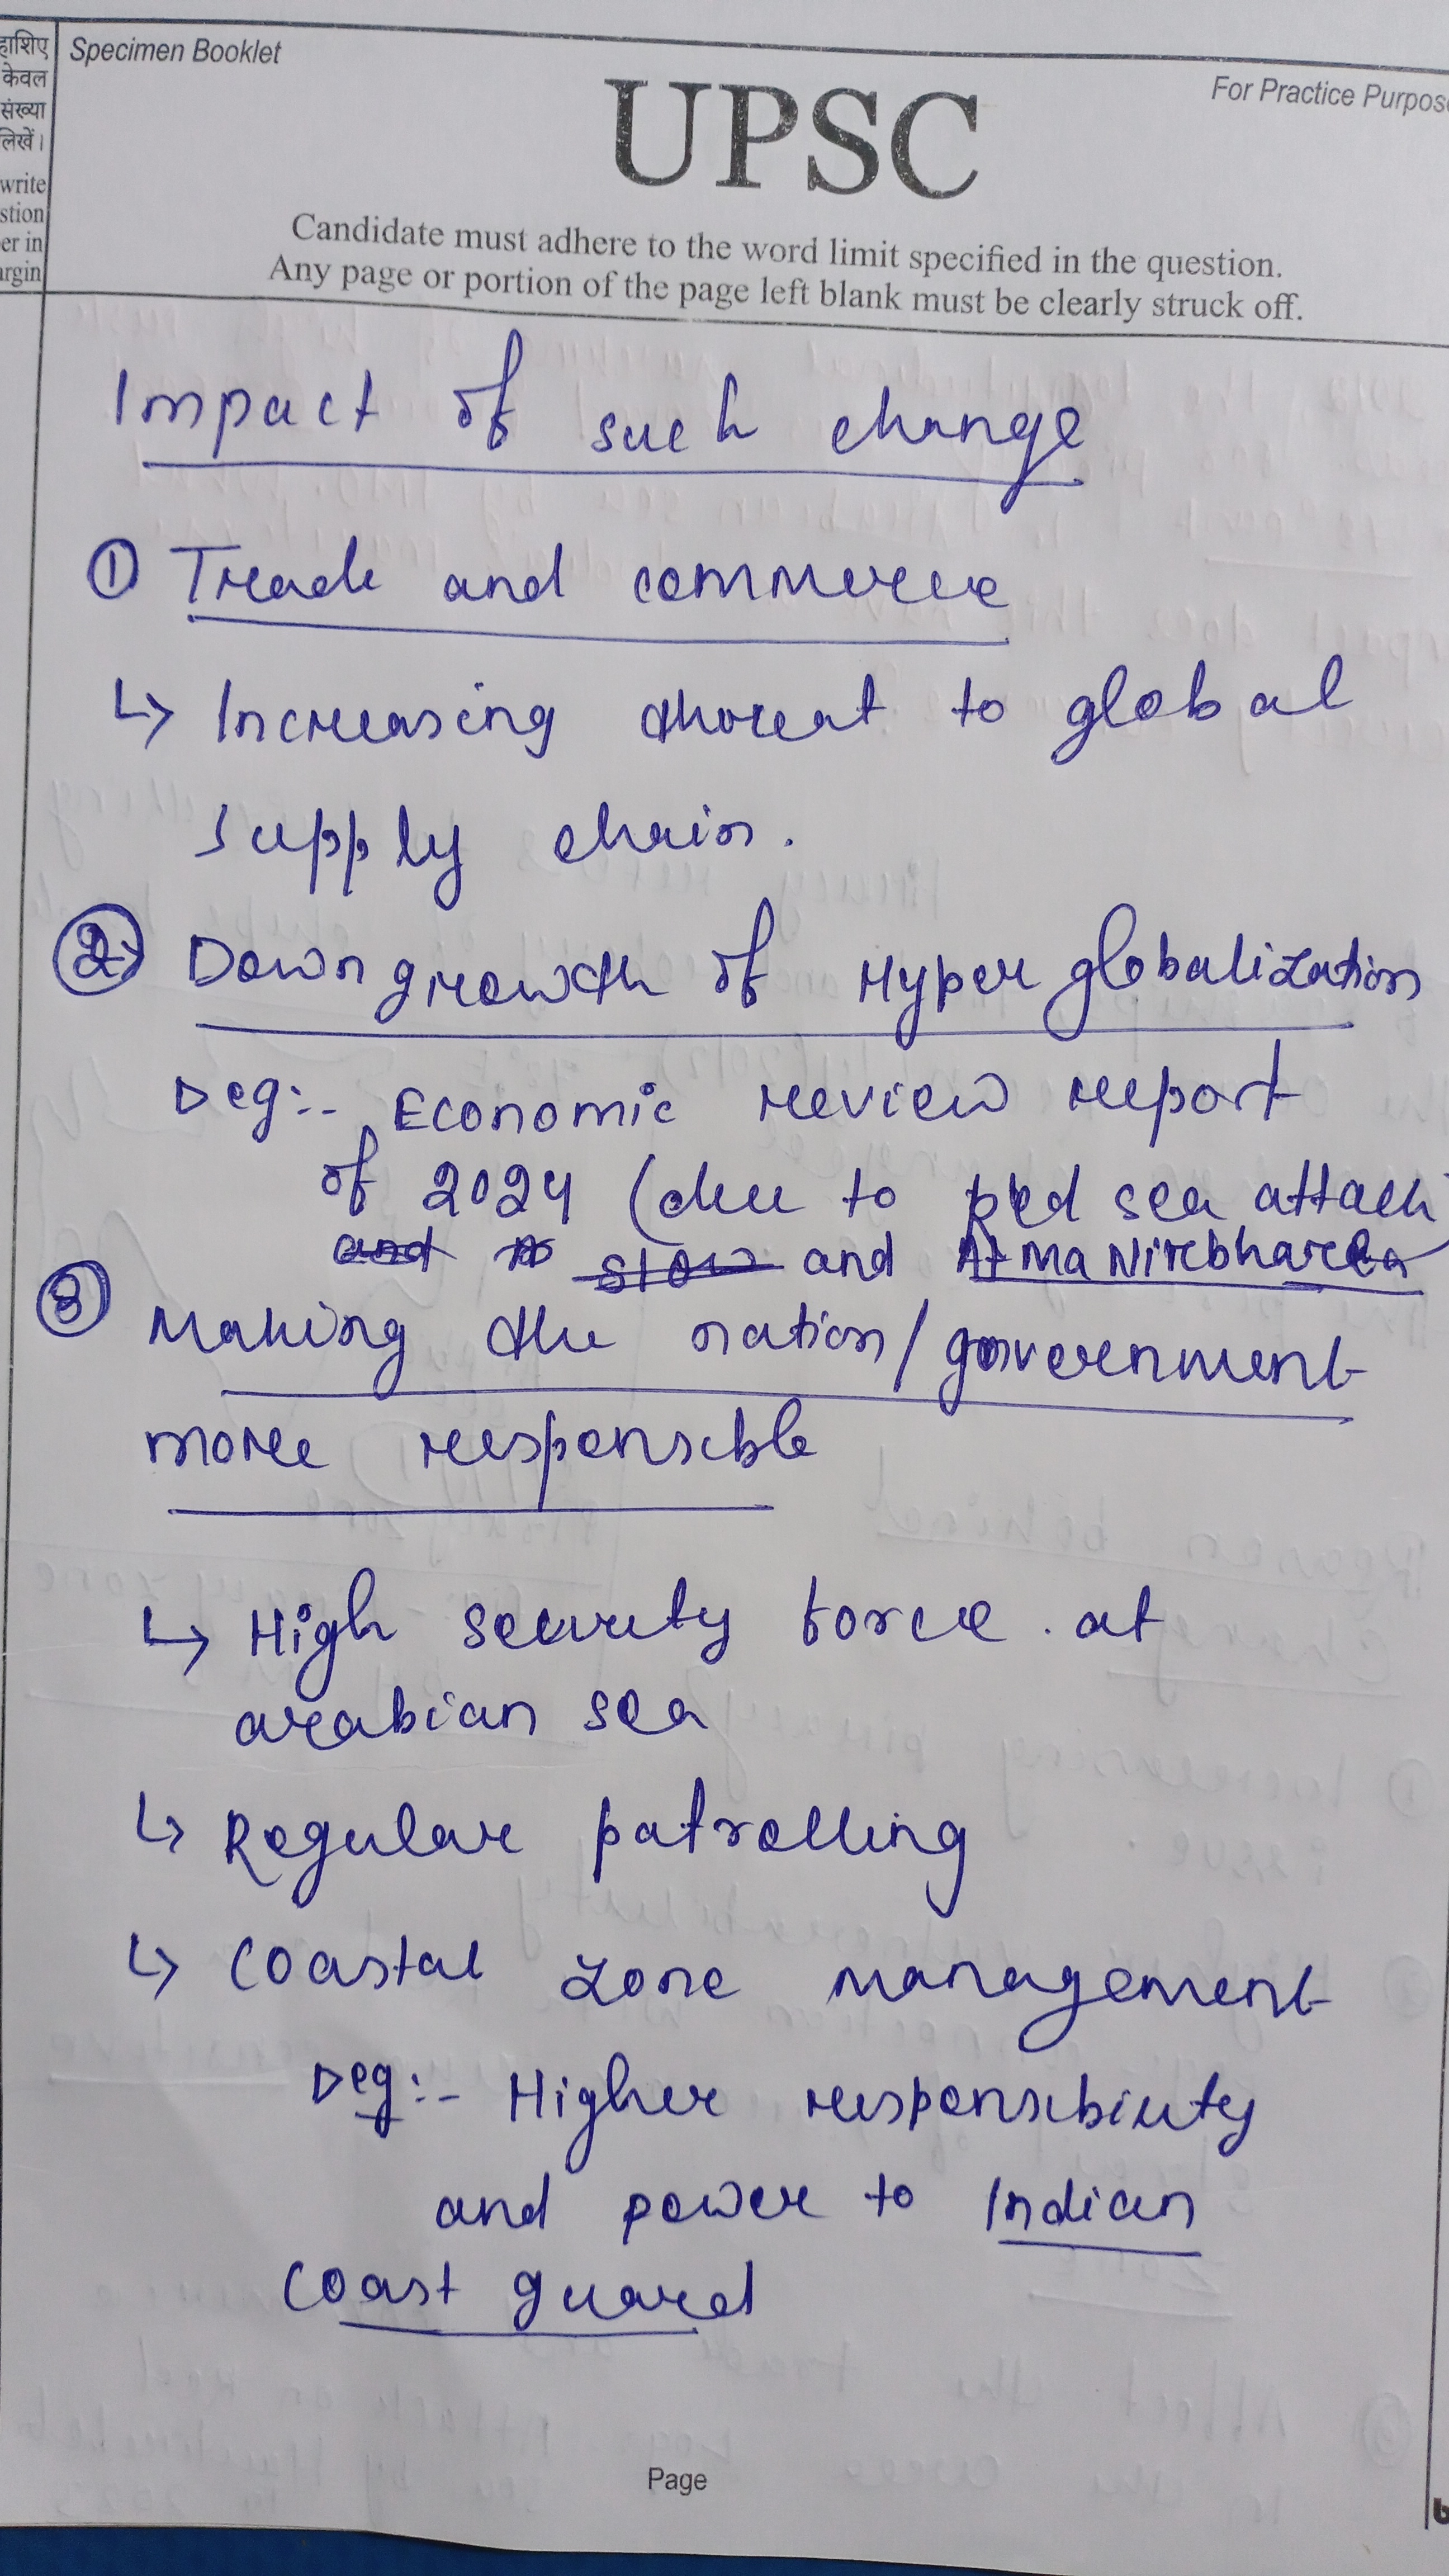 हाशिए
केवल
संख्या
लिखें।
write
stion
er in
argin
Specimen Booklet
For Practice Purpose
UPSC
Candidate must adhere to the word limit specified in the question.
Any page or portion of the page left blank must be clearly struck off.
Impact of such change
① Trade and commerce
↳ Increasing threat to global
supply chain.
② Down growth of Hyper globalization
Deg:- Economic review report
of 2024 (due to Red sea attack
and slow and AtmaNirbharta
③ Making the nation/government
more responsible
↳ High security force at
arabian sea
↳ Regular patrolling
↳ Coastal zone management
Deg:- Higher responsibility
and power to Indian
coast guard
Page